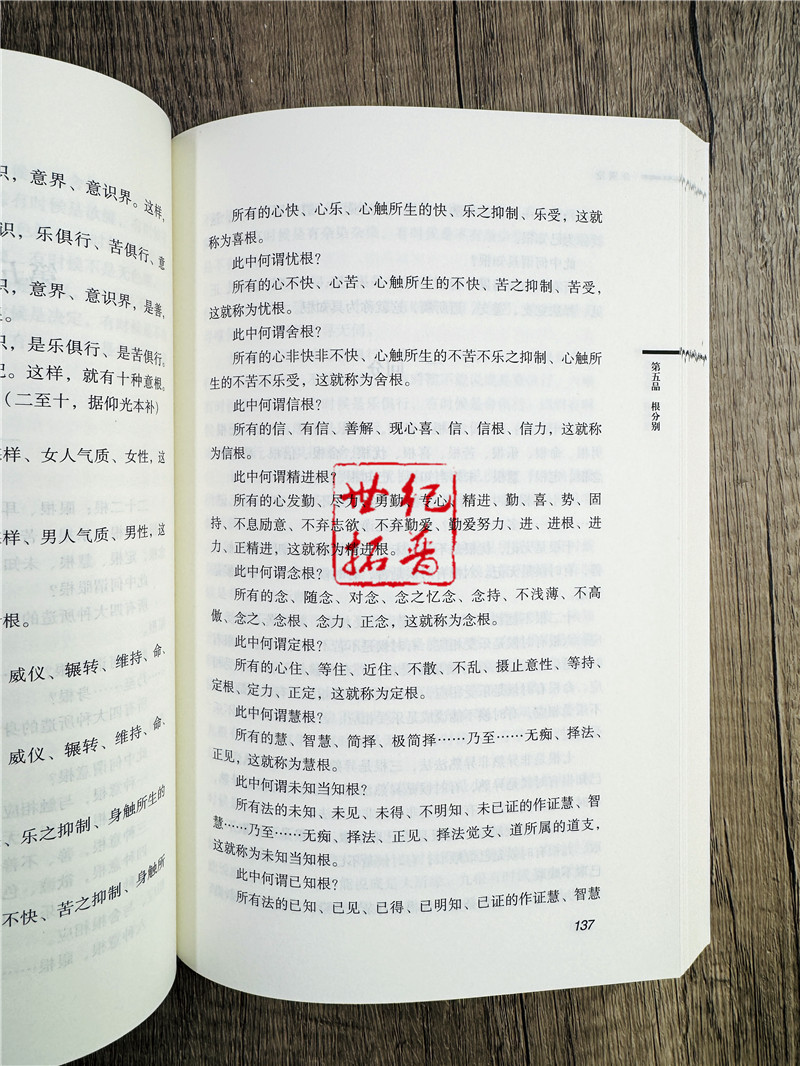 识，意界、意识界。这样，
识，乐俱行、苦俱行、意
识，意界、意识界，是善，
识，是乐俱行、是苦俱行。
记。这样，就有十种意根。
（二至十，据仰光本补）
样、女人气质、女性，这
样、男人气质、男性，这
根。
威仪、辗转、维持、命、
威仪、辗转、维持、命、
、乐之抑制、身触所生的
不快、苦之抑制、身触所
所有的心快、心乐、心触所生的快、乐之抑制、乐受，这就
称为喜根。
此中何谓忧根？
所有的心不快、心苦、心触所生的不快、苦之抑制、苦受，
这就称为忧根。
此中何谓舍根？
所有的心非快非不快、心触所生的不苦不乐之抑制、心触所
生的不苦不乐受，这就称为舍根。
此中何谓信根？
所有的信、有信、善解、现心喜、信、信根、信力，这就称
为信根。
此中何谓精进根？
所有的心发勤、尽力、勇勤、专心、精进、勤、喜、势、固
持、不息励意、不弃志欲、不弃勤爱、勤爱努力、进、进根、进
力、正精进，这就称为精进根。
此中何谓念根？
所有的念、随念、对念、念之忆念、念持、不浅薄、不高
傲、念之、念根、念力、正念，这就称为念根。
此中何谓定根？
所有的心住、等住、近住、不散、不乱、摄止意性、等持、
定根、定力、正定，这就称为定根。
此中何谓慧根？
所有的慧、智慧、简择、极简择……乃至……无痴、择法、
正见，这就称为慧根。
此中何谓未知当知根？
所有法的未知、未见、未得、不明知、未已证的作证慧、智
慧……乃至……无痴、择法、正见、择法觉支、道所属的道支，
这就称为未知当知根。
此中何谓已知根？
所有法的已知、已见、已得、已明知、已证的作证慧、智慧
137
第五品 根分别
世纪
拓晋